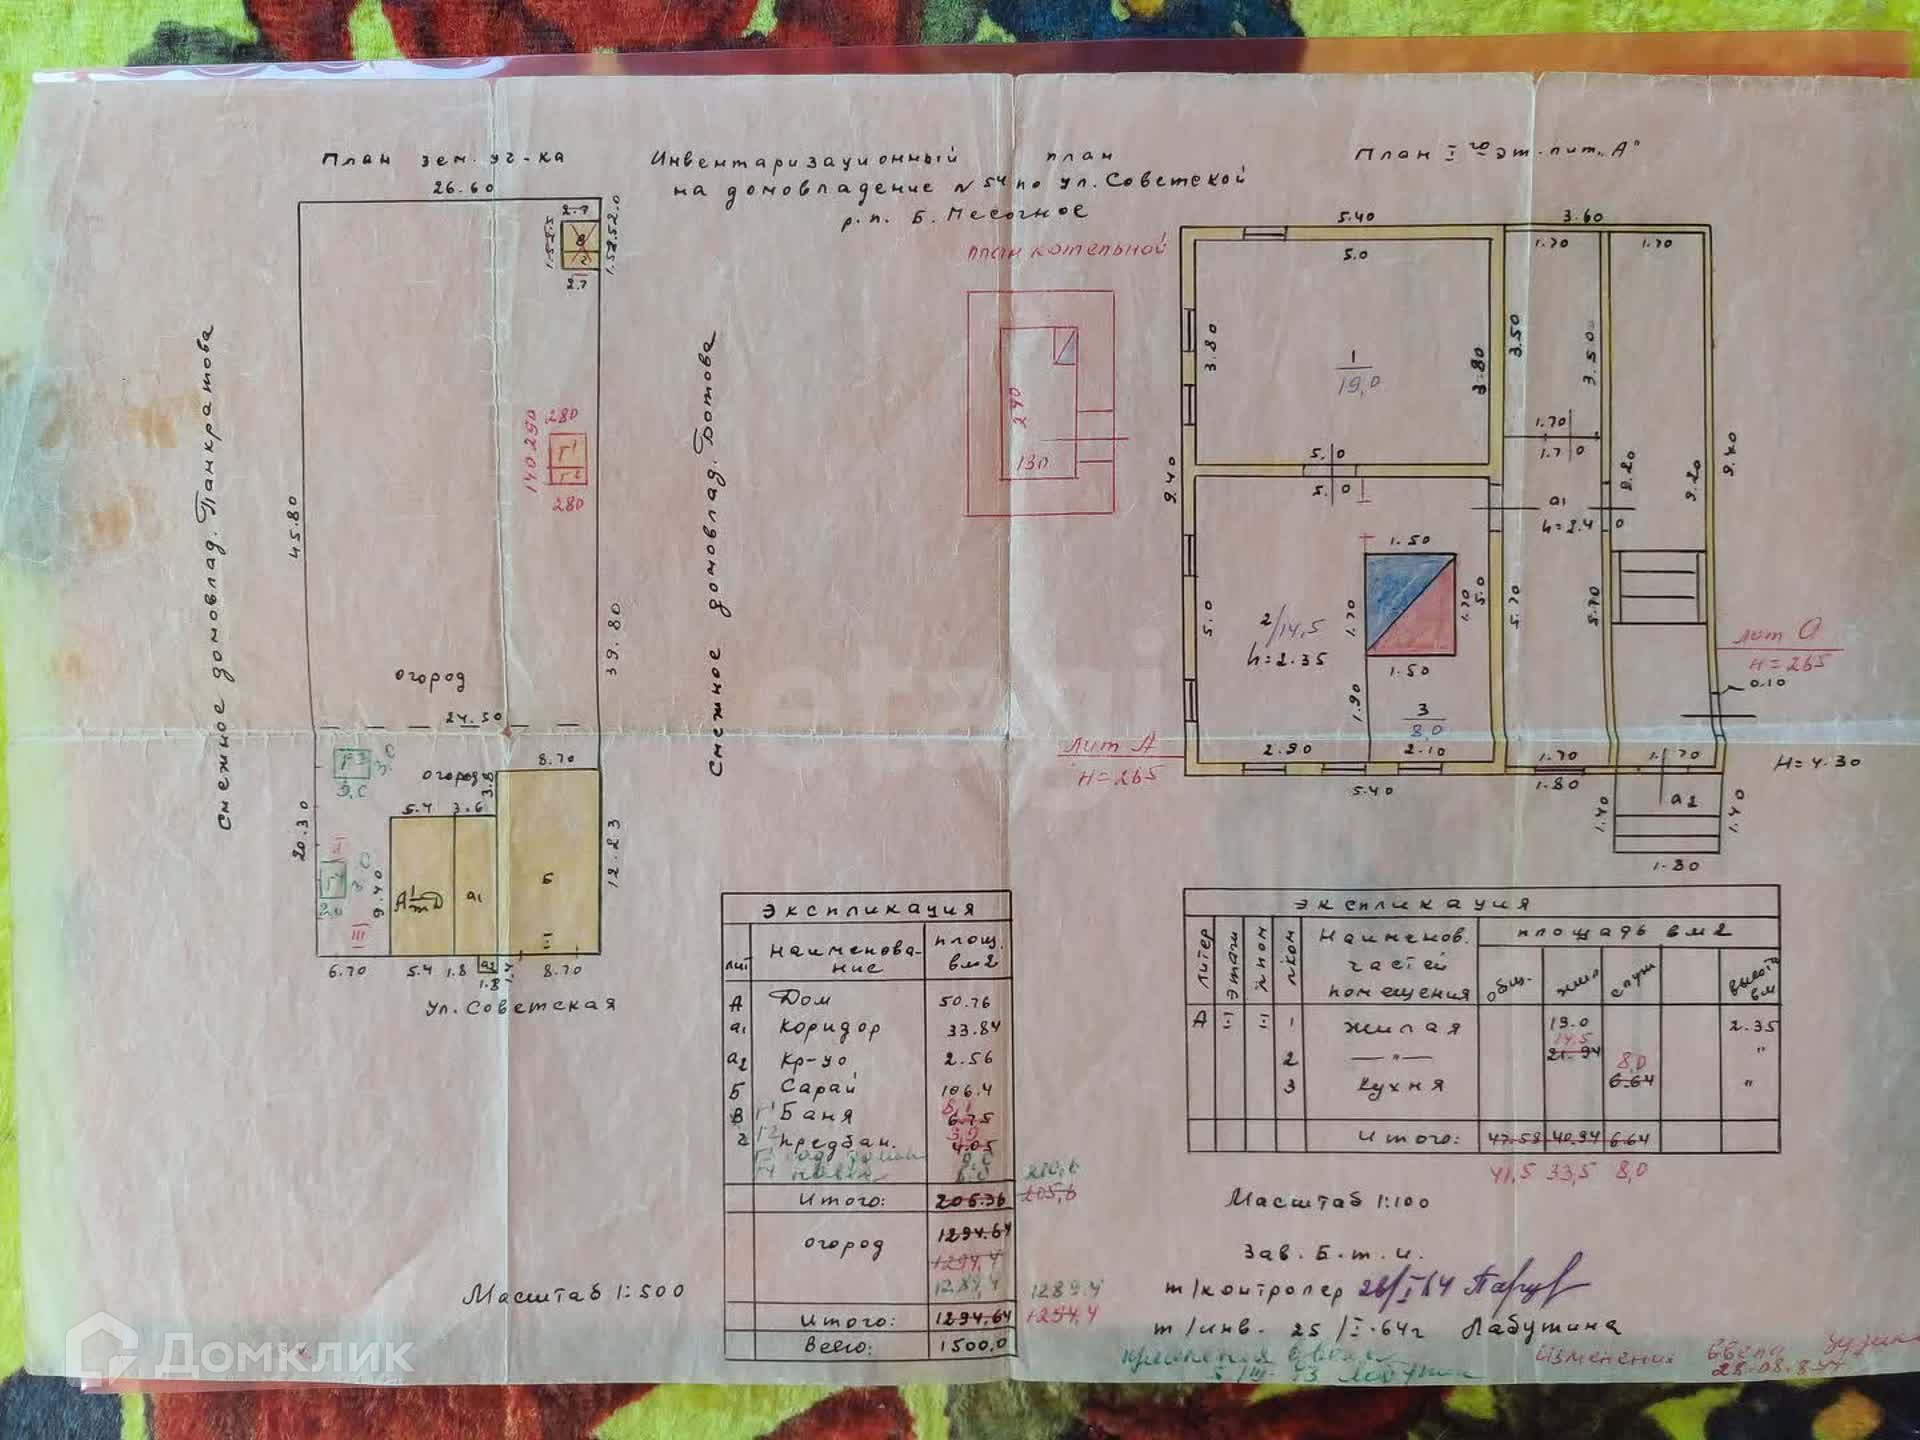 План зем. уч-ка
26.60
Инвентаризационный план
на домовладение №54 по ул. Советской
р.п. Б. Песочное
План I го эт. лит. „А"
план котельной
290
130
2.7
2.0
2.7
280
140 290
Г1
Г2
280
45.80
39.80
Смежное домовлад. Панкратова
Смежное домовлад. Ботова
огород
24.50
огород
8.70
3.8
5.4 3.6
20.30
9.40
12.23
Г3
Г4
2.0
II
III
а1
Б
I
6.70 5.4 1.8 а2 1.4 8.70
1.8
ул. Советская
Масштаб 1:500
5.40 3.60
5.0 1.70 1.70
3.80
1
19,0
3.80
3.50
3.50
1.70
1.70
5.0
5.0
9.40
9.20
9.20
9.40
а1
h=2.40
1.50
1.70
1.70
5.0
5.0
2/14,5
h=2.35
1.50
1.90
3
8,0
5.70
5.70
лит О
н=265
0.10
лит А
н=265
2.90 2.10 1.70 1.70
5.40 1.80
Н=4.30
а2
1.40
1.40
1.80
экспликация
лит наименова-ние площ. в м2
А Дом 50.76
а1 Коридор 33.84
а2 Кр-цо 2.56
Б Сарай 106.4
В Г1 Баня 8,1 6.75
г Г2 предбан. 3,9 4.05
Г3 9.0
Г4 навес 6.0
210,6
Итого: 206.36 205,6
огород 1294.64
1294,4
1289,4 1289.4
Итого: 1294.64 1294,4
Всего: 1500,0
экспликация
Литер Этажи № пом № ком Наименов. частей помещения площадь в м2
общ. жил спуж высота в м
А 1-1 1-1 1 жилая 19.0 2.35
2 —"— 14,5 21.94 "
3 Кухня 8,0 6.64 "
Итого: 47.58 40.94 6.64
41,5 33,5 8,0
Масштаб 1:100
Зав. Б.т.и.
т/контролер 26/I 64
т/инв. 25/I-64г Лабутина
изменения ввела
28.08.84
Домклик
etagi